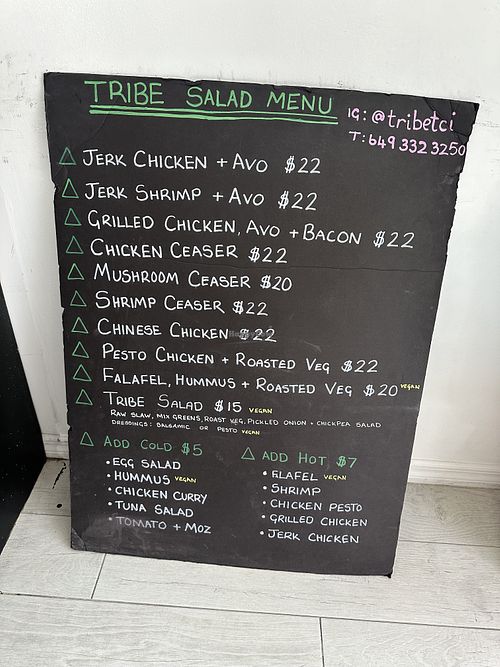 TRIBE SALAD MENU
IG: @tribetci
T: 649 332 3250
JERK CHICKEN + AVO $22
JERK SHRIMP + AVO $22
GRILLED CHICKEN, AVO + BACON $22
CHICKEN CEASER $22
MUSHROOM CEASER $20
SHRIMP CEASER $22
CHINESE CHICKEN $22
PESTO CHICKEN + ROASTED VEG $22
FALAFEL, HUMMUS + ROASTED VEG $20 VEGAN
TRIBE SALAD $15 VEGAN
RAW SLAW, MIX GREENS, ROAST VEG, PICKLED ONION + CHICKPEA SALAD
DRESSINGS: BALSAMIC OR PESTO VEGAN
ADD COLD $5
• EGG SALAD
• HUMMUS VEGAN
• CHICKEN CURRY
• TUNA SALAD
• TOMATO + MOZ
ADD HOT $7
• FLAFEL VEGAN
• SHRIMP
• CHICKEN PESTO
• GRILLED CHICKEN
• JERK CHICKEN